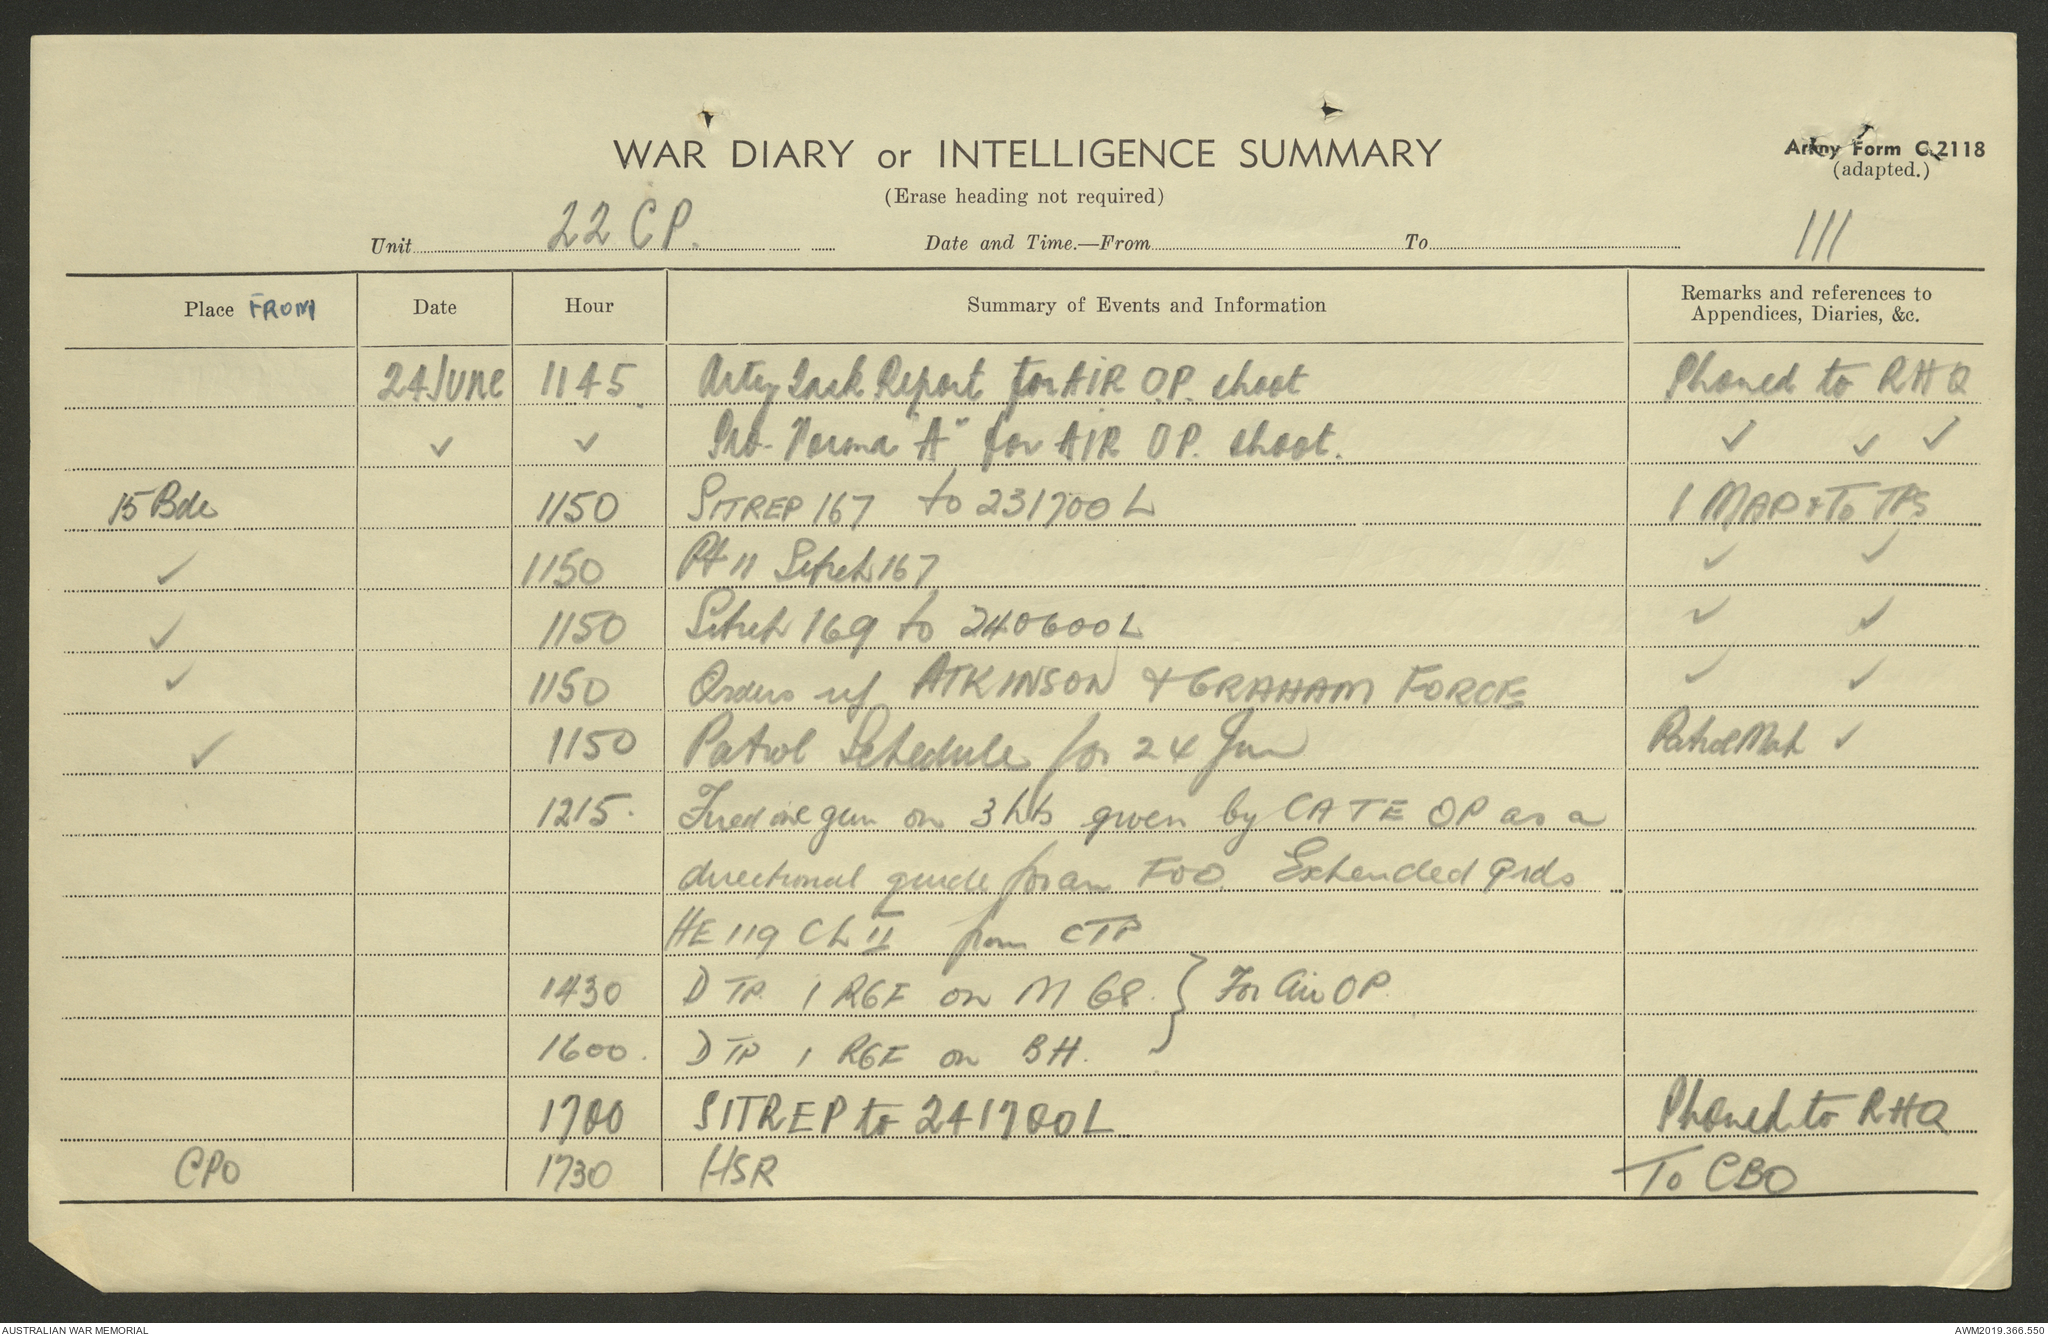 WAR DIARY or INTELLIGENCE SUMMARY
Army Form C.2118
(adapted.)
(Erase heading not required)
Unit 22 CP. Date and Time.—From To 111
Place FROM Date Hour Summary of Events and Information Remarks and references to
Appendices, Diaries, &c.
24 June 1145 Arty Task Report for AIR OP. shoot Phoned to RHQ
✓ ✓ Pro-Forma "A" for AIR OP. shoot. ✓ ✓ ✓
15 Bde 1150 SITREP 167 to 231700 L 1 MAP & To TPS
✓ 1150 Pt 11 Sitrep 167 ✓ ✓
✓ 1150 Sitrep 169 to 240600 L ✓ ✓
✓ 1150 Orders ref ATKINSON & GRAHAM FORCE ✓ ✓
✓ 1150 Patrol Schedule for 24 Jun Patrol Map ✓
1215. Fired one gun on 3 given by CATE OP as a
directional guide for an FOO. Extended grds
HE 119 Ch II from CTP
1430 D TP. 1 RGF on M 68. } For Air OP.
1600. D TP 1 RGF on BH.
1700 SITREP to 241700L Phoned to RHQ
CPO 1730 HSR To CBO
AUSTRALIAN WAR MEMORIAL AWM2019.366.550